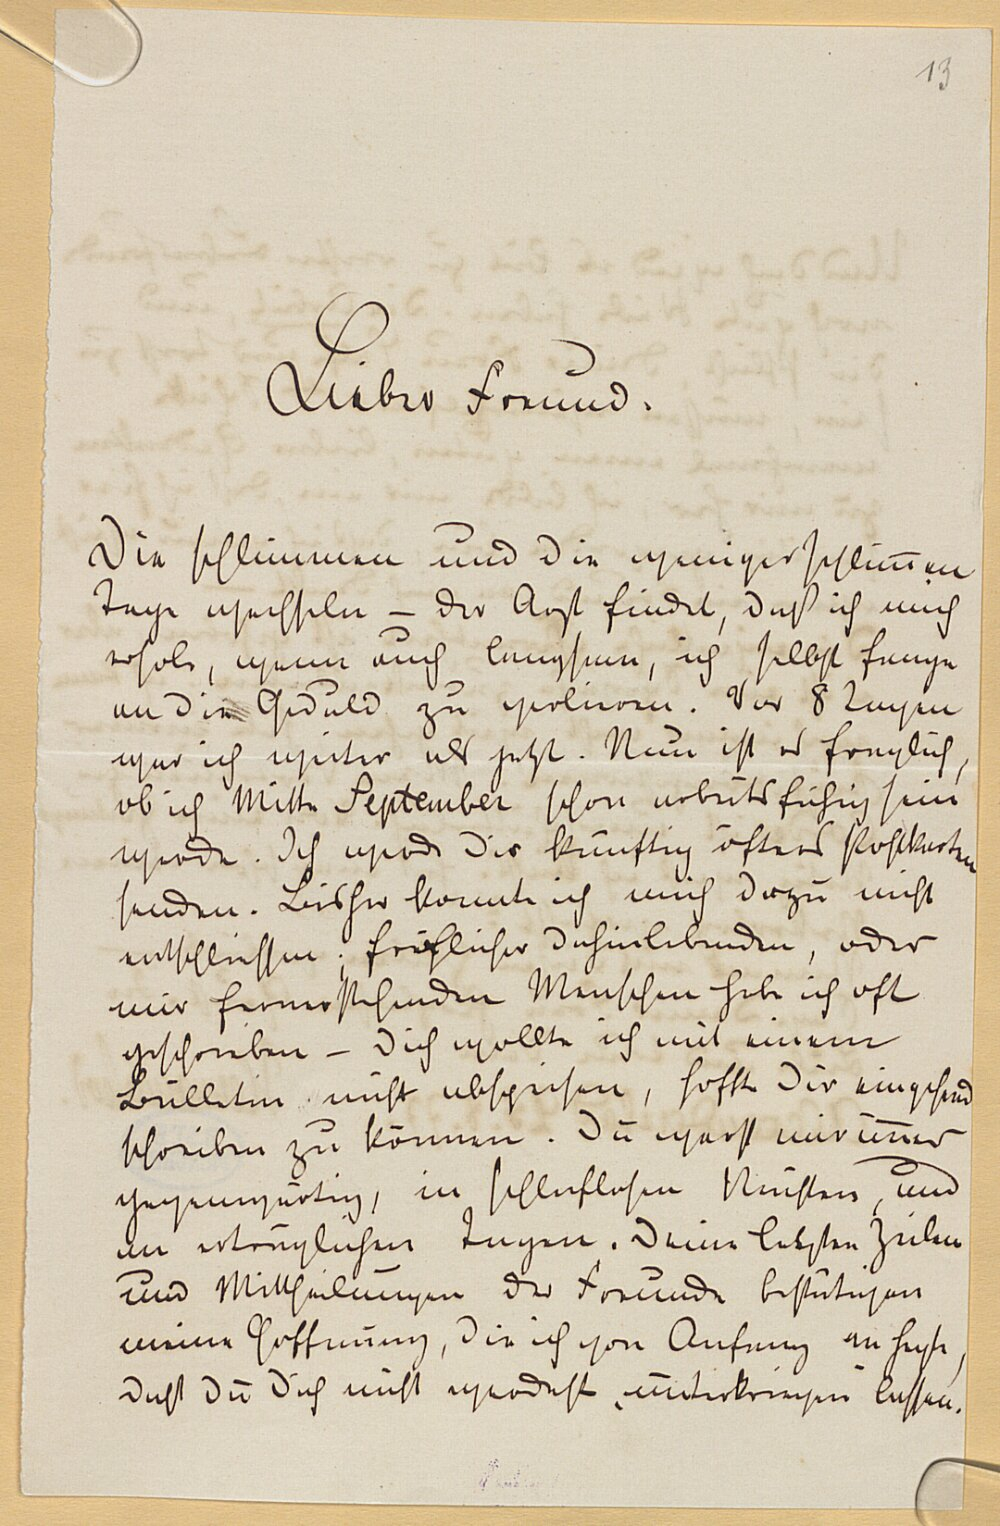 13
Lieber Freund.
Die schlimmen und die weniger schlim̅en
Tage wechseln – der Arzt findet, daß ich mich
erhole, wenn auch langsam, ich selbst fange
an die Geduld zu verlieren. Vor 8 Tagen
war ich weiter als jetzt. Nun ist es fraglich,
ob ich Mitte September schon arbeitsfähig sein
werde. Ich werde Dir künftig öfters Postkarten
senden. Bisher konnte ich mich dazu nicht
entschliessen; fröhlicher dahinlebenden, oder
mir fernerstehenden Menschen habe ich oft
geschrieben – Dich wollte ich mit einem
Bulletin nicht abspeisen, hoffte Dir eingehend
schreiben zu können. Du warst mir im̅er
gegenwärtig, in schlaflosen Nächten, und
an erträglichen Tagen. Deine letzten Zeilen
und Mittheilungen der Freunde bestätigen
meine Hoffnung, die ich von Anfang an hegte,
daß Du Dich nicht werdest unterkriegen lassen.